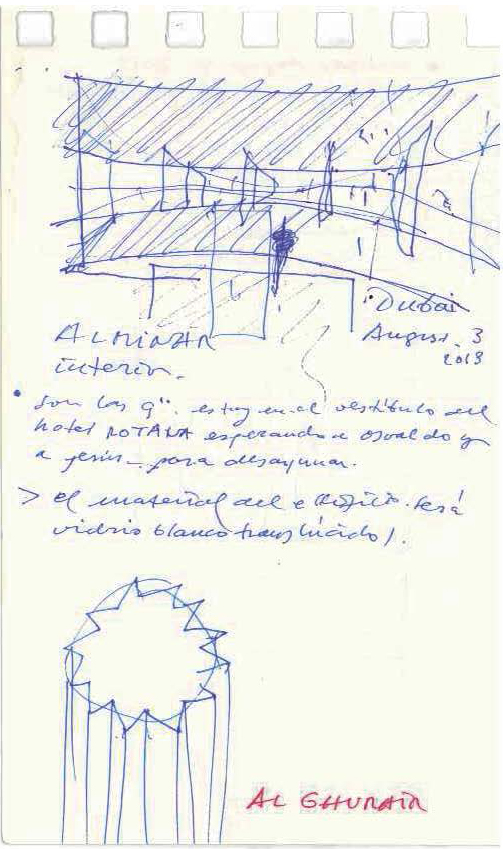 Dubai
August. 3
2013
ALMINAR
interior.
• son las 9'' estoy en el vestíbulo del
hotel ROTANA esperando a osvaldo y
a jesús para desayunar.
> el material del edificio. será
vidrio blanco translúcido).
AL GHURAIR